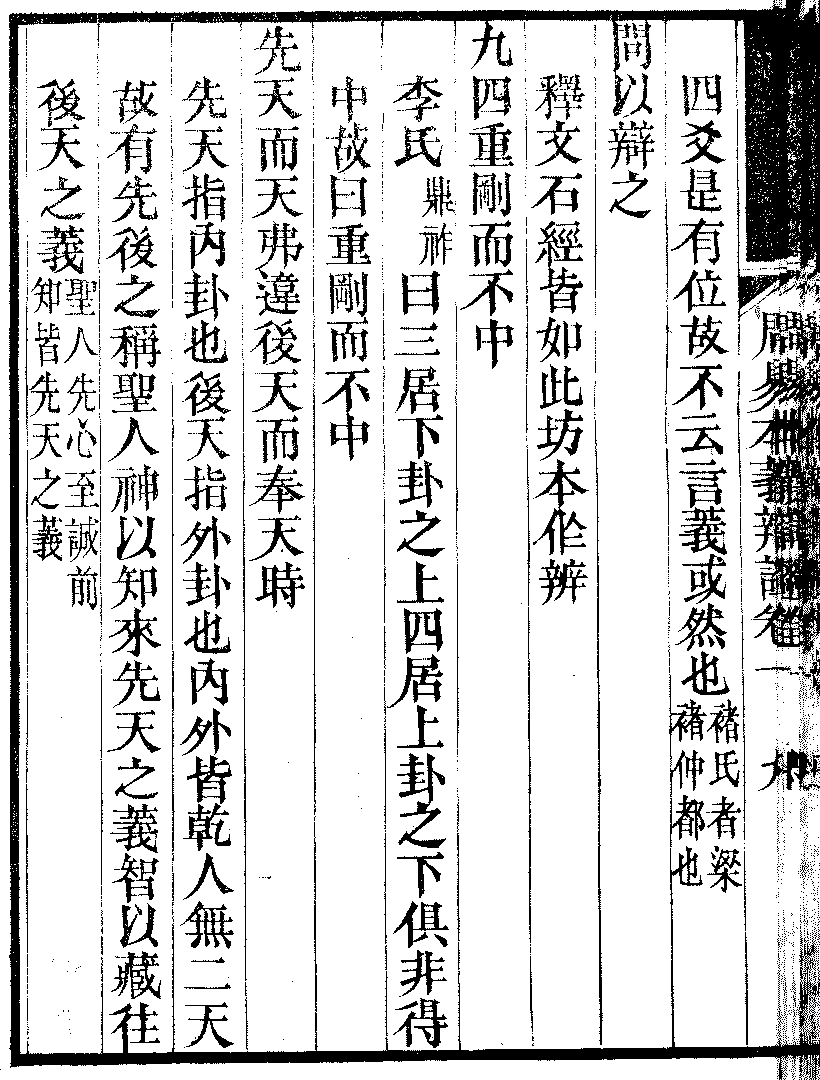 四爻是有位故不云言義或然也褚氏者梁褚仲都也
問以辯之
釋文石經皆如此坊本作辨
九四重剛而不中
李氏鼎祚曰三居下卦之上四居上卦之下俱非得
中故曰重剛而不中
先天而天弗違後天而奉天時
先天指內卦也後天指外卦也內外皆乾人無二天
故有先後之稱聖人神以知來先天之義智以藏往
後天之義聖人先心至誠前知皆先天之義